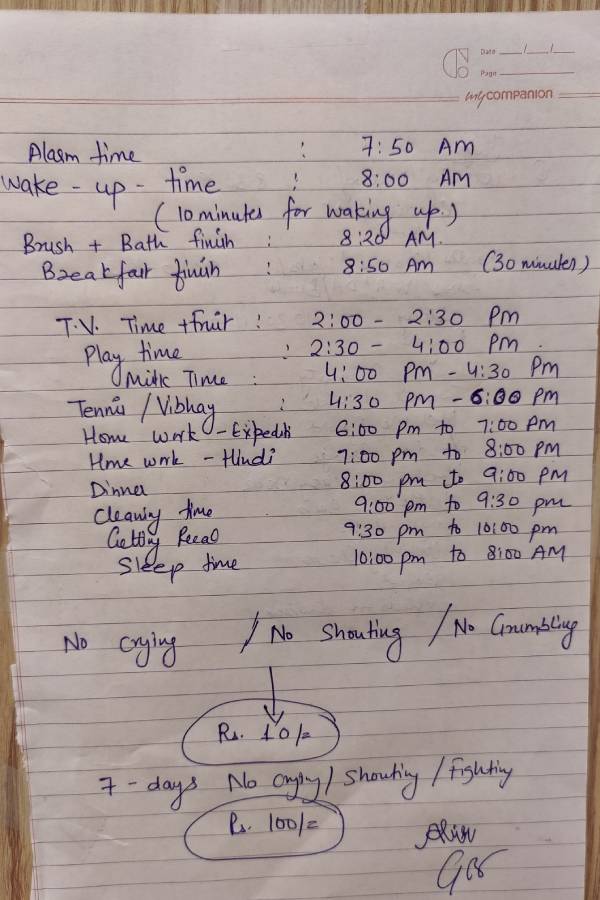 Date __/__/__
Page
mycompanion
Alarm time : 7:50 AM
Wake - up - time : 8:00 AM
(10 minutes for waking up.)
Brush + Bath finish : 8:20 AM.
Breakfast finish : 8:50 Am (30 minutes)
T.V. Time + fruit : 2:00 - 2:30 Pm
Play time : 2:30 - 4:00 Pm.
Milk Time : 4:00 Pm - 4:30 Pm
Tennis / Vibhay : 4:30 PM - 6:00 PM
Home work - 6:00 Pm to 7:00 AM
Hme work - Hindi 7:00 pm to 8:00 PM
Dinner 8:00 pm to 9:00 PM
Cleaning time 9:00 pm to 9:30 pm
Getting 9:30 pm to 10:00 pm
Sleep time 10:00 pm to 8:00 AM
No crying / No Shouting / No Grumbling
Rs. 10/=
7 - days No crying / Shouting / Fighting
Rs. 100/=